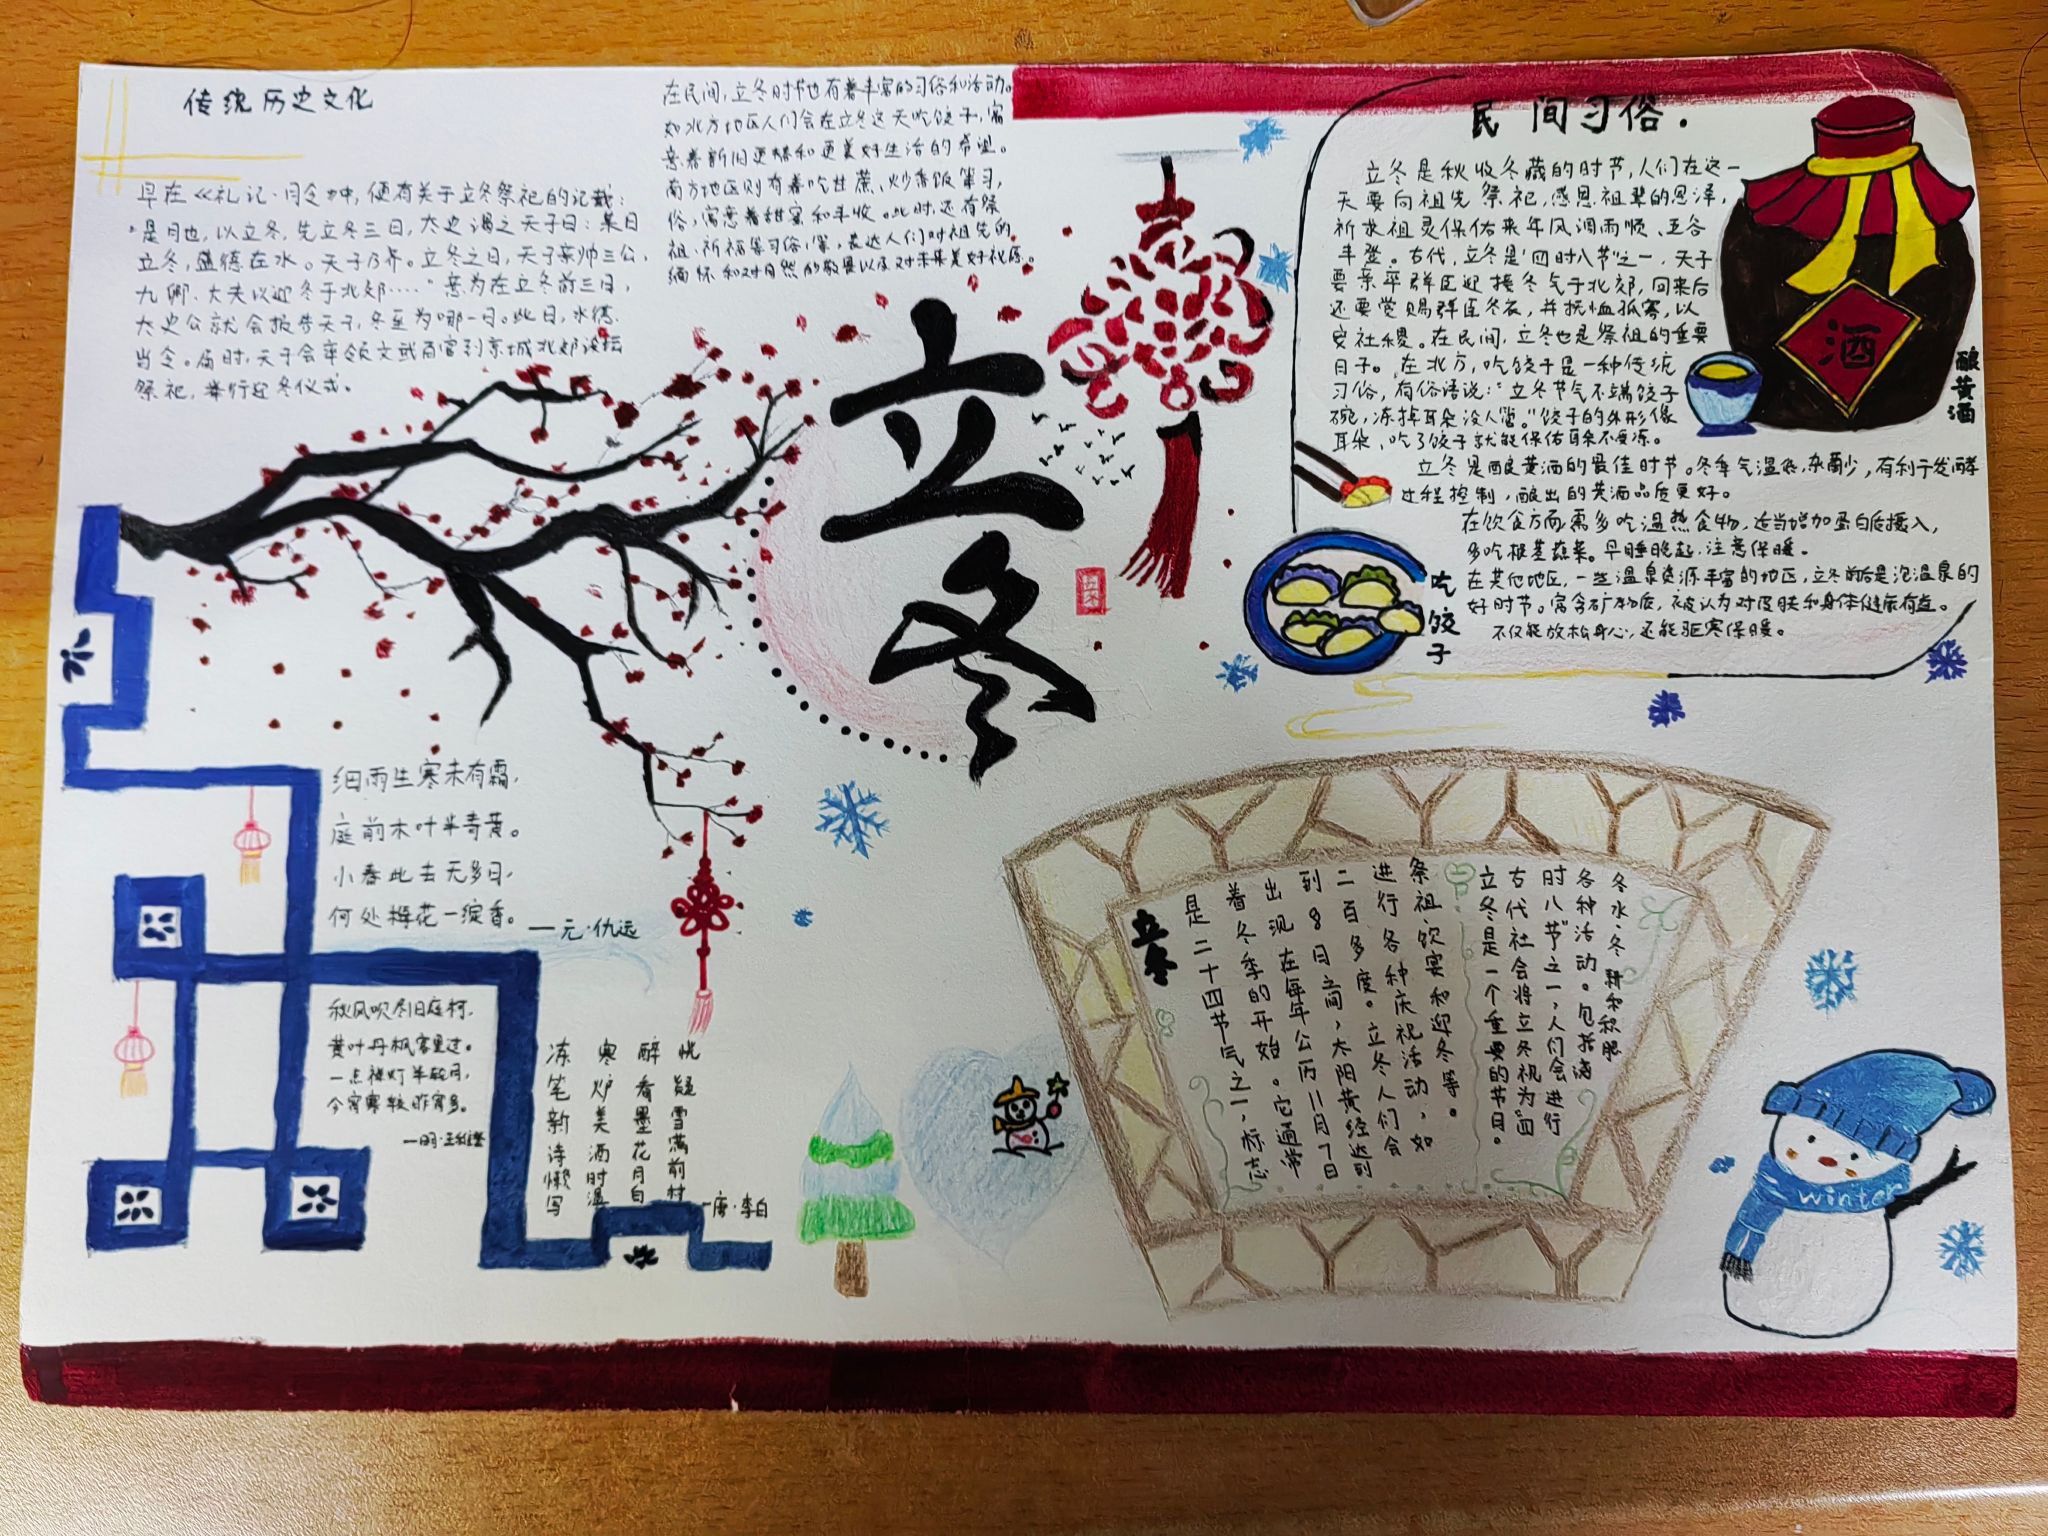 传统历史文化
早在《礼记·月令》中,便有关于立冬祭祀的记载:
"是月也,以立冬,先立冬三日,太史谒之天子曰:某日
立冬,盛德在水。天子乃齐。立冬之日,天子亲帅三公,
九卿、大夫以迎冬于北郊……"意为在立冬前三日,
太史公就会报告天子,冬至为哪一日。此日,水德
当令。届时,天子会率领文武百官到京城北郊设坛
祭祀,举行迎冬仪式。
在民间,立冬时节也有着丰富的习俗和活动。
如北方地区人们会在立冬这天吃饺子,寓
意着新旧更替和更美好生活的希望。
南方地区则有着吃甘蔗、炒香饭等习,
俗,寓意着甜蜜和丰收。此时,还有祭
祖、祈福等习俗,表达人们对祖先的
缅怀和对自然的敬畏以及对未来美好祝愿。
立冬
民间习俗.
立冬是秋收冬藏的时节,人们在这一
天要向祖先祭祀,感恩祖辈的恩泽,
祈求祖灵保佑来年风调雨顺、五谷
丰登。古代,立冬是"四时八节"之一,天子
要亲率群臣迎接冬气于北郊,回来后
还要赏赐群臣冬衣,并抚恤孤寡,以
安社稷。在民间,立冬也是祭祖的重要
日子。在北方,吃饺子是一种传统
习俗,有俗语说:"立冬节气不端饺子
碗,冻掉耳朵没人管。"饺子的外形像
耳朵、吃了饺子就能保佑耳朵不受冻。
立冬是酿黄酒的最佳时节。冬季气温低,杂菌少,有利于发酵
过程控制,酿出的黄酒品质更好。
在饮食方面需多吃温热食物,适当增加蛋白质摄入,
多吃根茎蔬菜。早睡晚起,注意保暖。
在其他地区,一些温泉资源丰富的地区,立冬前后是泡温泉的
好时节。富含矿物质,被认为对皮肤和身体健康有益。
不仅能放松身心,还能驱寒保暖。
酒
酿黄酒
吃饺子
细雨生寒未有霜,
庭前木叶半青黄。
小春此去无多日,
何处梅花一绽香。
—元·仇远
秋风吹尽旧庭柯,
黄叶丹枫客里过。
一点禅灯半轮月,
今宵寒较昨宵多。
—明·王稚登
冻笔新诗懒写
寒炉美酒时温
醉看墨花月白
恍疑雪满前村
—唐·李白
立冬
是二十四节气之一,标志
着冬季的开始。它通常
出现在每年公历11月7日
到8日之间,太阳黄经达到
二百多度。立冬人们会
进行各种庆祝活动,如
祭祖、饮宴和迎冬等。
立冬是一个重要的节日。
古代社会将立冬视为"四
时八节"之一,人们会进行
各种活动。包括
冬水、冬耕和积肥
winter